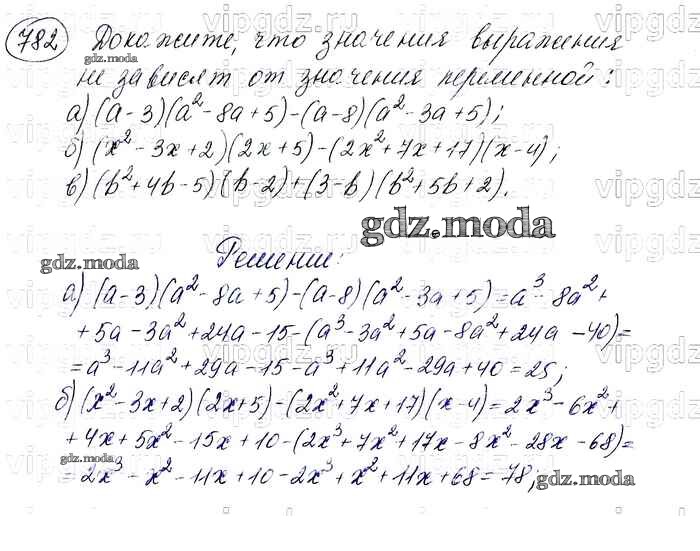 782 Докажите, что значения выражения
не зависят от значения переменной:
а) (a-3)(a²-8a+5)-(a-8)(a²-3a+5);
б) (x²-3x+2)(2x+5)-(2x²+7x+17)(x-4);
в) (b²+4b-5)(b-2)+(3-b)(b²+5b+2).
gdz.moda
Решение:
а) (a-3)(a²-8a+5)-(a-8)(a²-3a+5)=a³-8a²+
+5a-3a²+24a-15-(a³-3a²+5a-8a²+24a-40)=
=a³-11a²+29a-15-a³+11a²-29a+40=25;
б) (x²-3x+2)(2x+5)-(2x²+7x+17)(x-4)=2x³-6x²+
+4x+5x²-15x+10-(2x³+7x²+17x-8x²-28x-68)=
=2x³-x²-11x+10-2x³+x²+11x+68=78;
gdz.moda